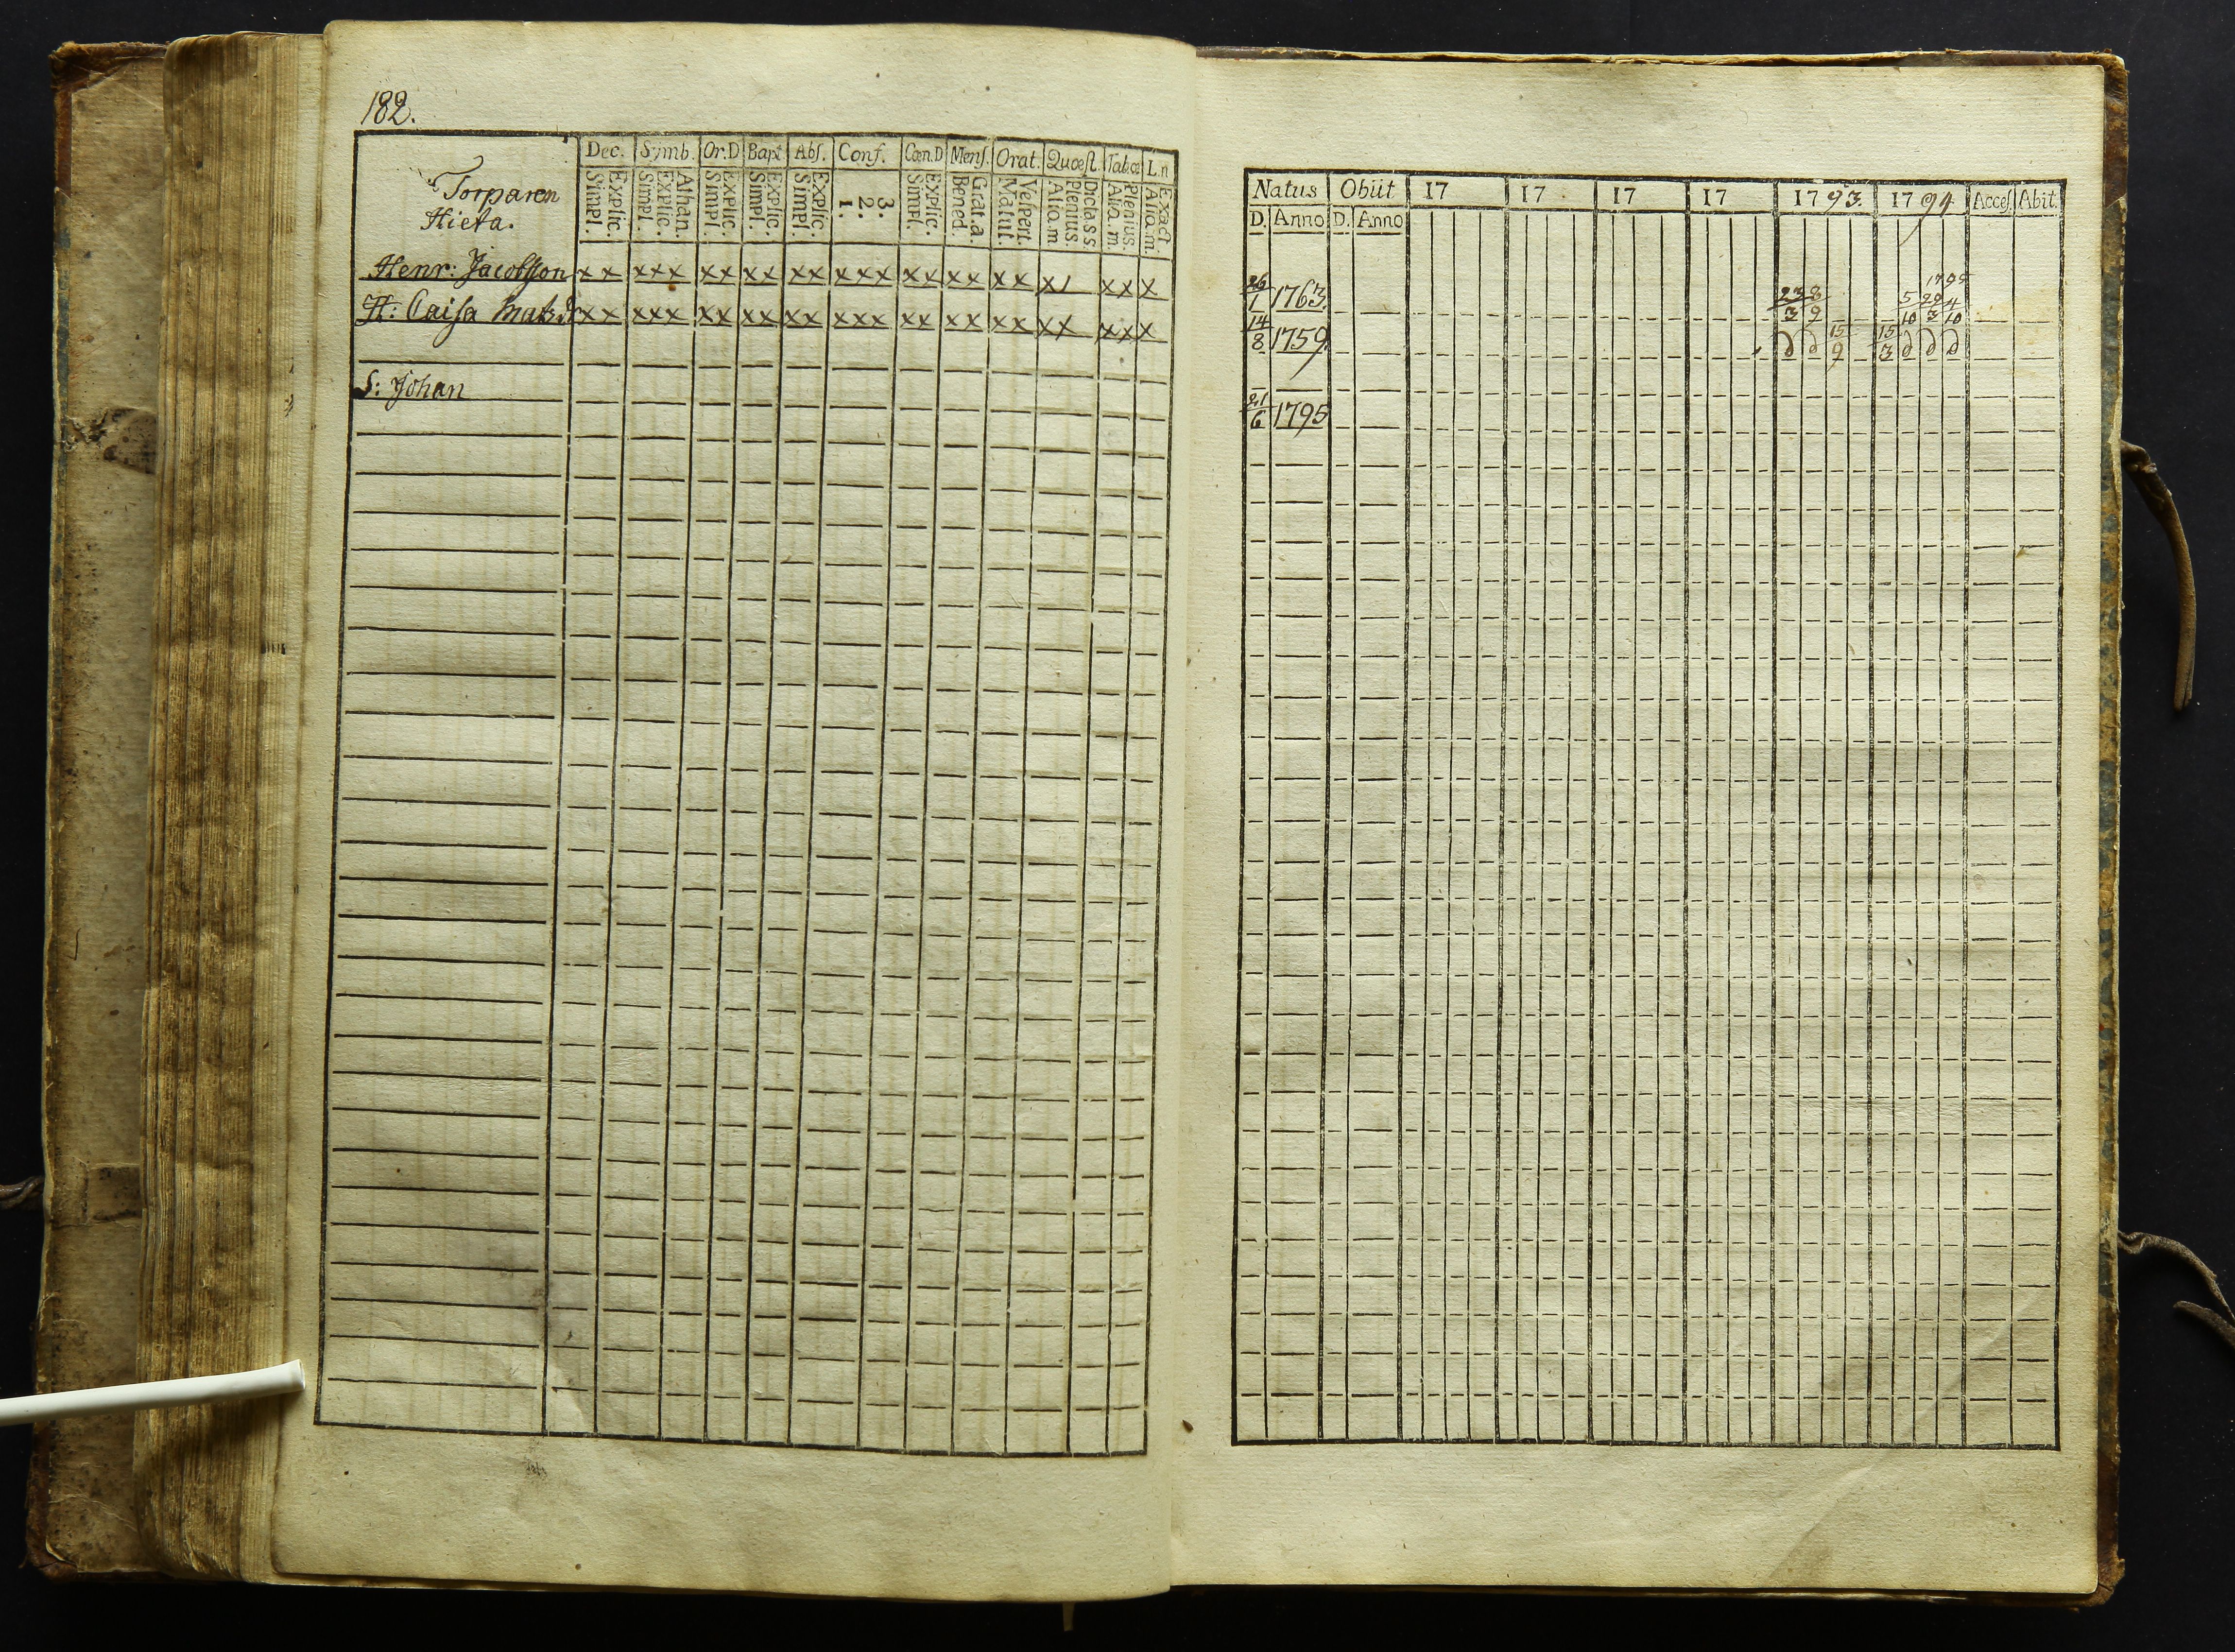 182.
Torparen
Hieta.
Dec. Symb. Or.D Bapt Abs. Conf. Cœn.D Mens. Orat. Quœst. Tabœ L.n
Simpl. Explic. Simpl. Explic. Athan. Simpl. Explic. Simpl. Explic. Simpl. Explic. 1. 2. 3. Simpl. Explic. Bened. Grat.a. Matut. Vespert. Alio.m. Plenius. Dicta ss. Alio.m. Plenius. Alio.m. Exact.
Henr: Jacobsson x x x x x x x x x x x x x x x x x x x x x x x x x
H: Caisa Matsdr x x x x x x x x x x x x x x x x x x x x x x x x x
S: Johan
Natus Obiit 17 17 17 17 1793. 1794 Acces. Abit.
D. Anno D. Anno
1795
26/1 1763. 23/3 8/9 5/10 29/3 4/10
14/8 1759. 15/9 15/3
21/6 1795